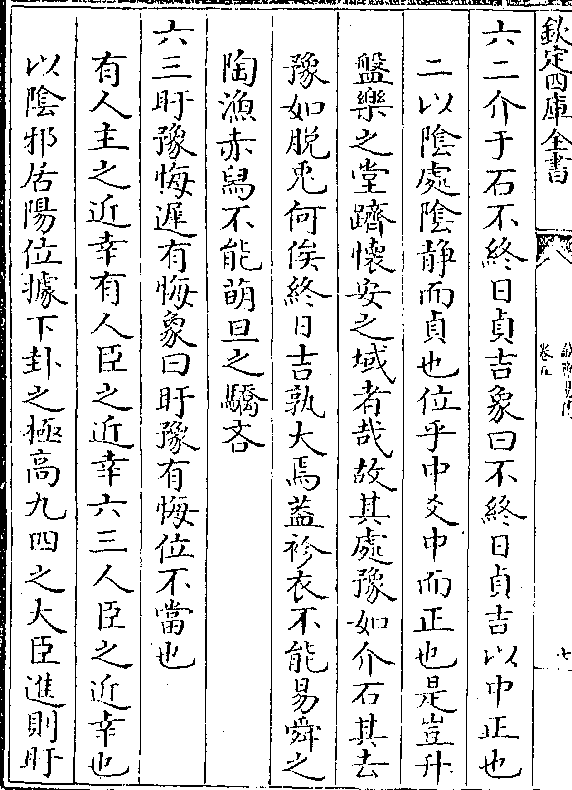 欽定四庫全書
卷五
七
六二介于石不終日貞吉象曰不終日貞吉以中正也
二以陰處陰静而貞也位乎中爻中而正也是豈升
盤樂之堂躋懷安之域者哉故其處豫如介石其去
豫如脱兎何俟終日吉孰大焉蓋袗衣不能易舜之
陶漁赤舄不能萌旦之驕吝
六三盱豫悔遲有悔象曰盱豫有悔位不當也
有人主之近幸有人臣之近幸六三人臣之近幸也
以陰邪居陽位據下卦之極高九四之大臣進則盱